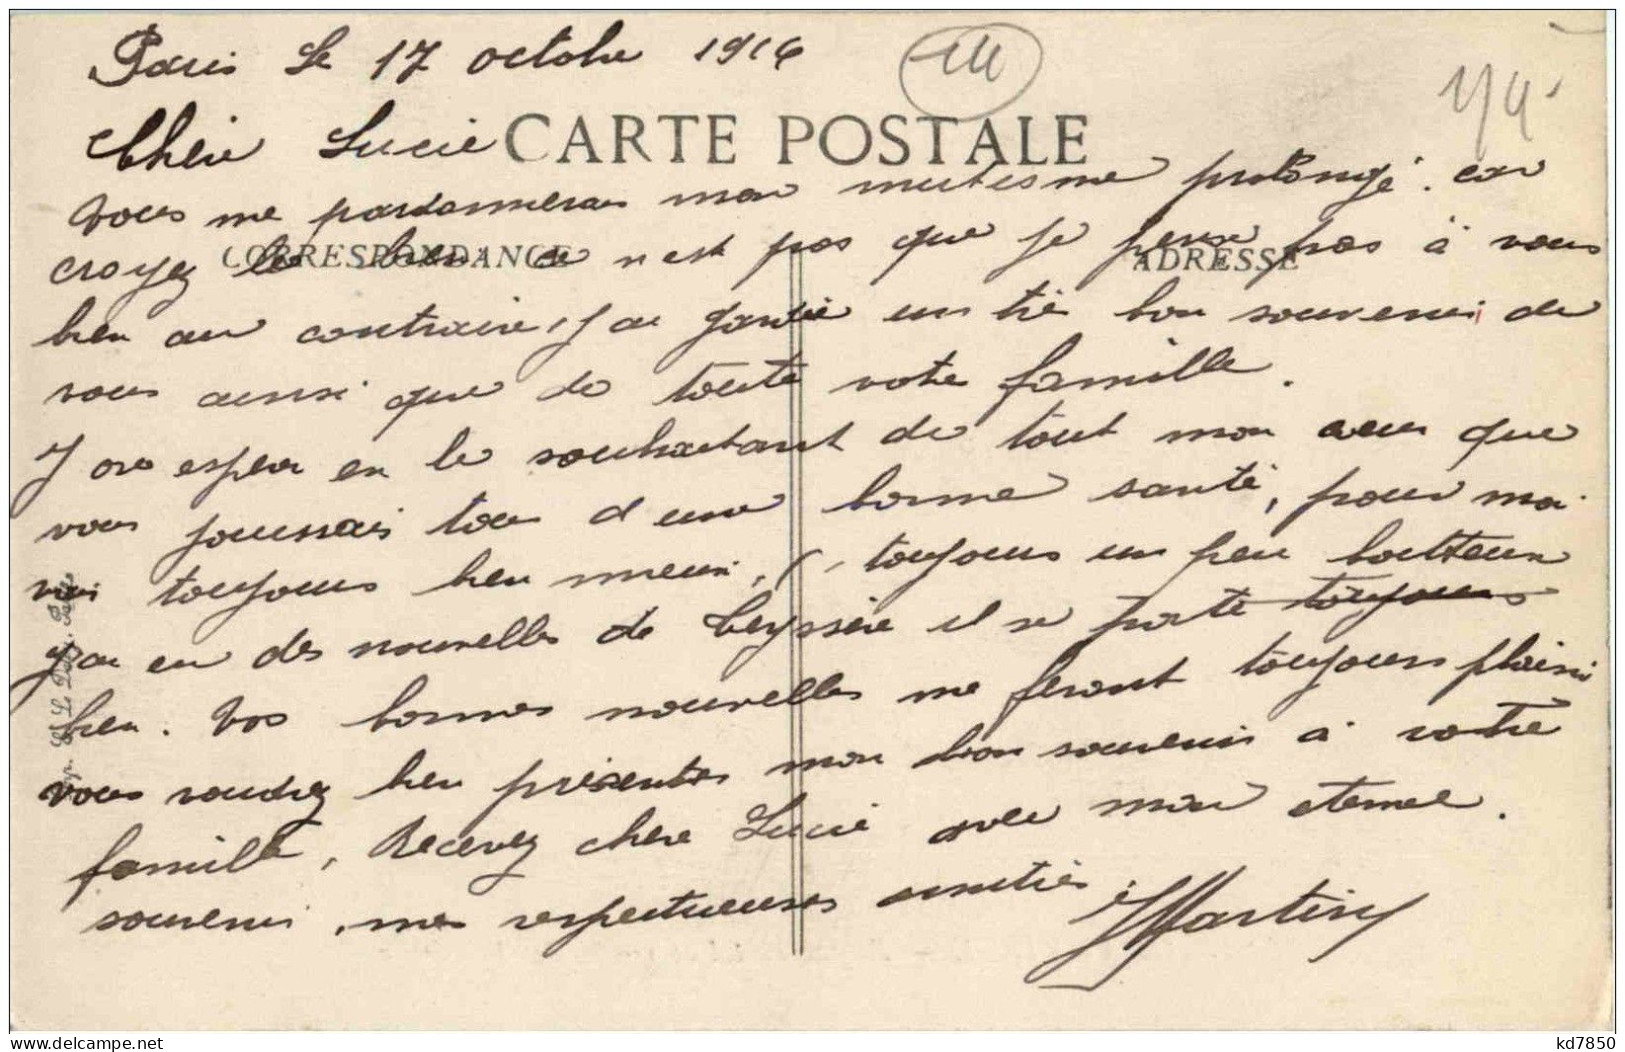 Paris le 17 octobre 1916
Chère Lucie
CARTE POSTALE
Vous me pardonnerais mon mutisme prolongé. car
CORRESPONDANCE
ADRESSE
croyez le bien ce n'est pas que je pense pas à vous
bien au contraire, j'ai gardée un très bon souvenir de
vous ainsi que de toute votre famille.
J'ose espérer en le souhaitant de tout mon cœur que
vous jouissais tous d'une bonne santé, pour moi
vais toujours bien mieux, toujours un peu boiteux
J'ai eu des nouvelles de Teyssère il se porte toujours
bien. Vos bonnes nouvelles me feront toujours plaisir
vous voudrez bien présenter mon bon souvenir à votre
famille, Recevez chère Lucie avec mon eternel.
souvenir, mes respectueuses amitiés.
Martin
delcampe.net
kd7850